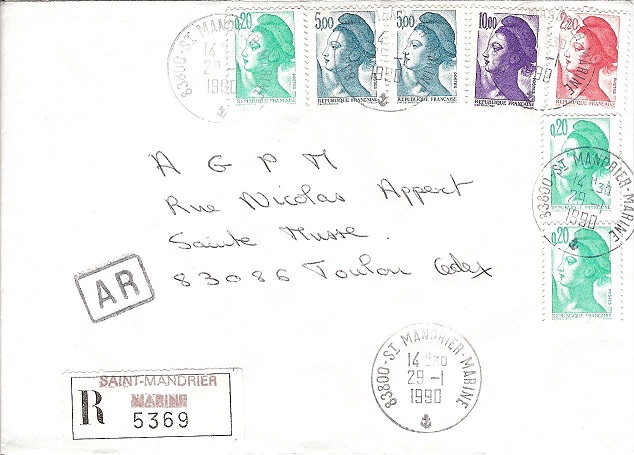 0,20
5,00
5,00
10,00
2,20
REPUBLIQUE FRANÇAISE
REPUBLIQUE FRANÇAISE
REPUBLIQUE FRANÇAISE
REPUBLIQUE FRANÇAISE
REPUBLIQUE FRANÇAISE
83800-ST MAND
14
29
1990
MARINE
1990
0,20
83800-ST MANDRIER-MARINE
14 30
29
1990
0,20
REPUBLIQUE FRANÇAISE
A G P M
Rue Nicolas Appert
Sainte Musse.
83086 Toulon Cedex
AR
83800-ST MANDRIER-MARINE
14 H30
29 -1
1990
SAINT-MANDRIER
MARINE
R 5369